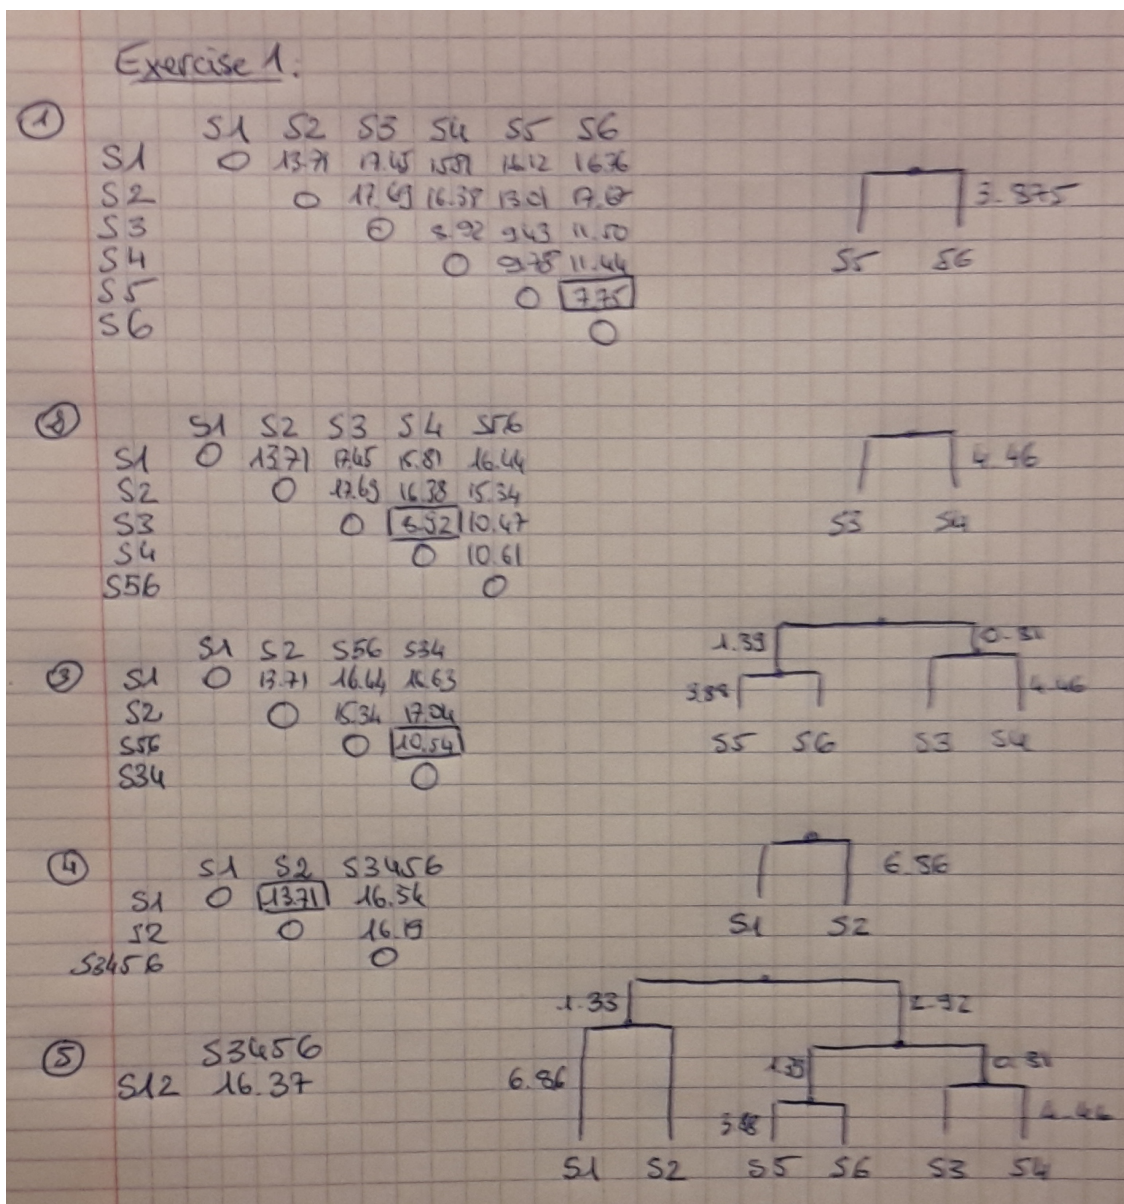 Exercise 1:
①
S1 S2 S3 S4 S5 S6
S1 0 13.71 17.45 15.81 16.12 16.76
S2 0 17.69 16.38 13.01 17.67
S3 0 8.92 9.43 11.50
S4 0 9.78 11.44
S5 0 7.75
S6 0
3.875
S5 S6
②
S1 S2 S3 S4 S56
S1 0 13.71 17.45 15.81 16.44
S2 0 17.69 16.38 15.34
S3 0 8.92 10.47
S4 0 10.61
S56 0
4.46
S3 S4
③
S1 S2 S56 S34
S1 0 13.71 16.44 16.63
S2 0 15.34 17.04
S56 0 10.54
S34 0
1.39 0.81
3.88 4.46
S5 S6 S3 S4
④
S1 S2 S3456
S1 0 13.71 16.54
S2 0 16.19
S3456 0
6.86
S1 S2
⑤
S3456
S12 16.37
1.33 2.92
6.86 1.39 0.81
3.88 4.46
S1 S2 S5 S6 S3 S4